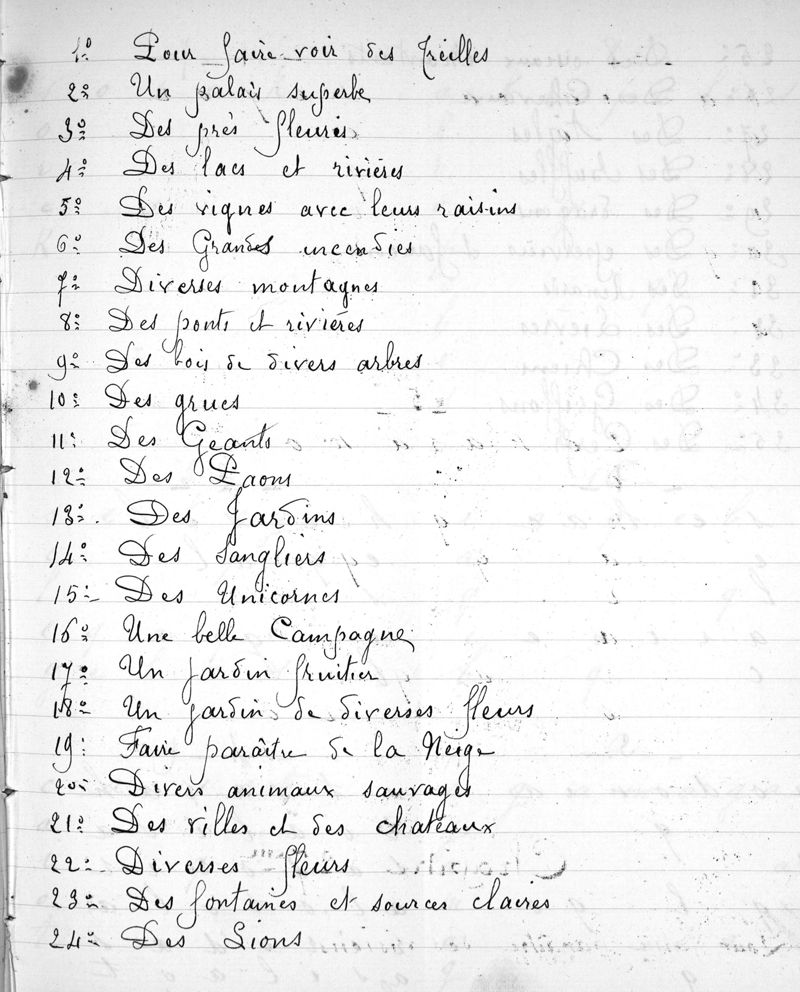 1º Pour faire voir des treilles
2º Un palais superbe
3º Des près fleuris
4º Des lacs et rivières
5º Des vignes avec leurs raisins
6º Des Grandes incendies
7º Diverses montagnes
8º Des ponts et rivières
9º Des bois de divers arbres
10º Des grues
11º Des Geants
12º Des Paons
13º Des Jardins
14º Des Sangliers
15º Des Unicornes
16º Une belle Campagne
17º Un jardin fruitier
18º Un jardin de diverses fleurs
19º Faire paraître de la Neige
20º Divers animaux sauvages
21º Des villes et des chateaux
22º Diverses fleurs
23º Des fontaines et sources claires
24º Des Lions